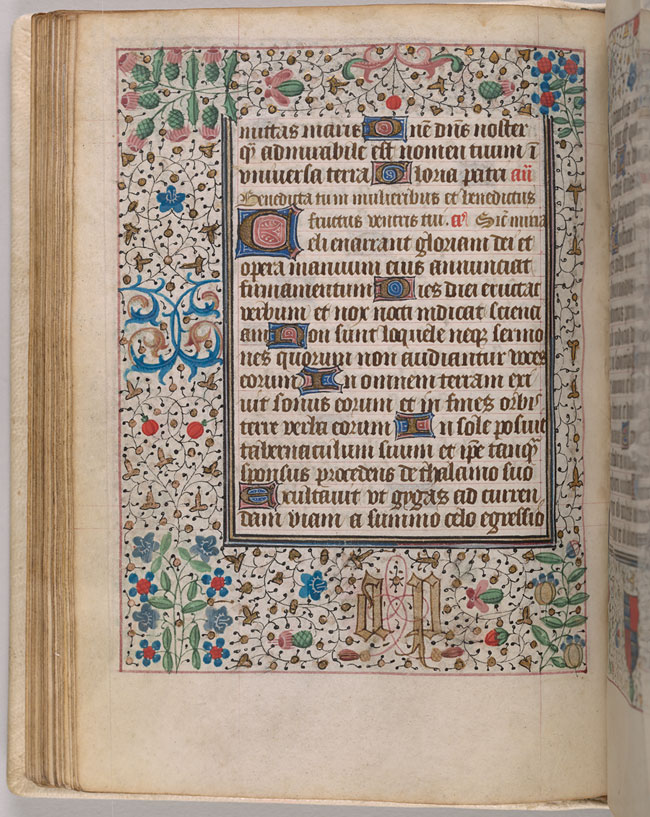 mittas maris Dnē dn̄s noster
q̄ admirabile est nomen tuum ī
vniuersa terra Gloria patri añ
Benedicta tum mulieribus et benedictus
fructus ventris tui. Sicut mirra
Celi enarrant gloriam dei et
opera manuum eius annunciat
firmamentum Dies diei eructat
verbum et nox nocti indicat scienci
am Non sunt loquele neq̄ sermo
nes quorum non audiantur voces
eorum In omnem terram exi
uit sonus eorum et in fines orbis
terre verba eorum In sole posuit
tabernaculum suum et ip̄e tanq̄
sponsus procedens de thalamo suo
Exultauit vt gygas ad curren
dam viam a summo celo egressio